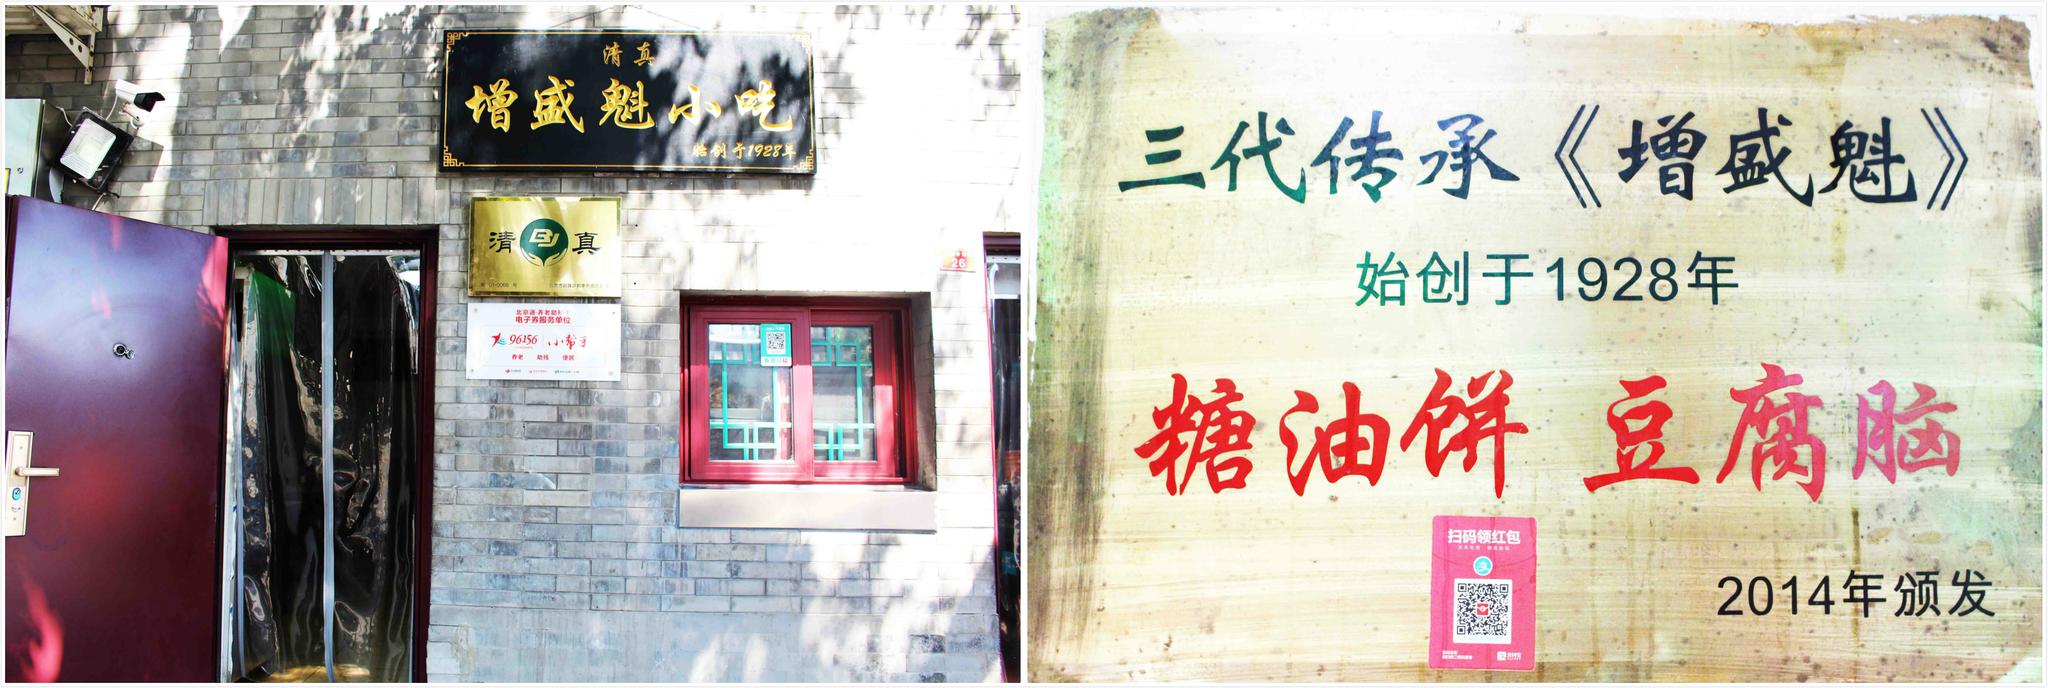 清真
增盛魁小吃
始创于1928年
清 BJ 真
北京通·养老助残卡
电子券服务单位
96156 小帮手
养老 助残 便民
26
三代传承《增盛魁》
始创于1928年
糖油饼 豆腐脑
扫码领红包
2014年颁发